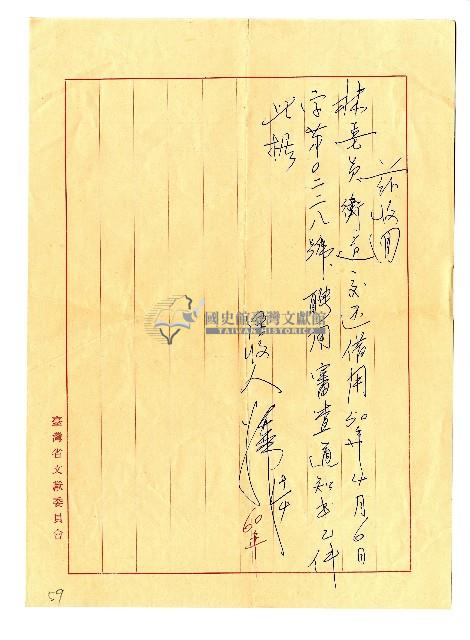 茲收周
林委員衡道交还借用50年4月6日
字第0二二八號聘用審查通知书乙件
此據
收人
14/4
60年
國史館臺灣文獻館
TAIWAN HISTORICA
臺灣省文獻委員會
59